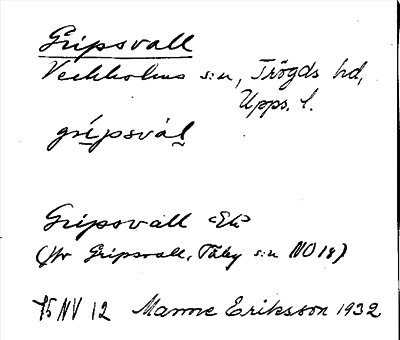 Gripsvall
Veckholms s:n, Trögds hd,
Upps. l.
grípsvàl
Gripsvall <Ek>
(jfr Gripsvall, Täby s:n NO 18)
75 NV 12 Manne Eriksson 1932